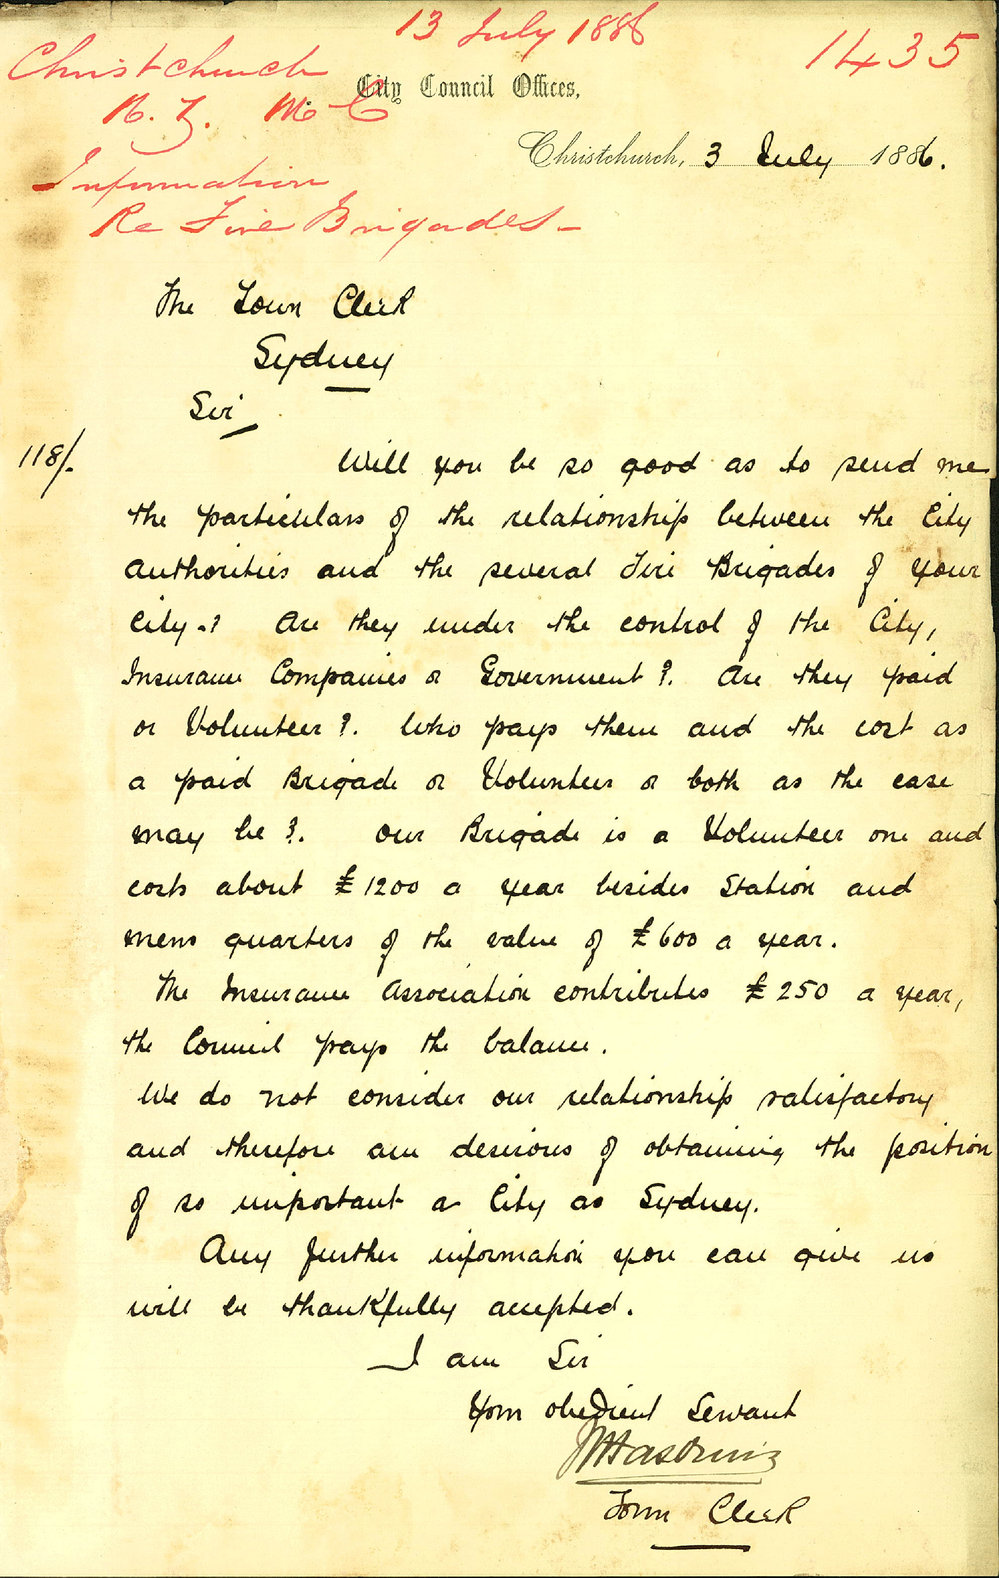 13 July 1886
1435
Christchurch
N. Z. M. C
Information
Re Fire Brigades -
City Council Offices,
Christchurch, 3 July 1886.
The Town Clerk
Sydney
Sir
118/.
Will you be so good as to send me
the particulars of the relationship between the City
authorities and the several Fire Brigades of your
City.? Are they under the control of the City,
Insurance Companies or Government?. Are they paid
or Volunteer?. Who pays them and the cost as
a paid Brigade or Volunteer or both as the case
may be?. Our Brigade is a Volunteer one and
costs about £1200 a year besides Station and
mens quarters of the value of £600 a year.
The Insurance Association contributes £250 a year,
the Council pays the balance.
We do not consider our relationship satisfactory
and therefore am desirous of obtaining the position
of so important a City as Sydney.
Any further information you can give us
will be thankfully accepted.
I am Sir
Your obedient Servant
Town Clerk